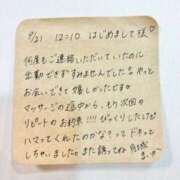 8/21 12:10 はじめまして様♡
何度もご連絡いただいていたのに
出勤できずすみませんでした なやっと
お会いできて嬉しかったです
マッサージの途中から、もう次回の
リピートのお約束!!! びっくりしたけど
ハマってくれたのかな?って ドキッと
しちゃいました。また誘ってね